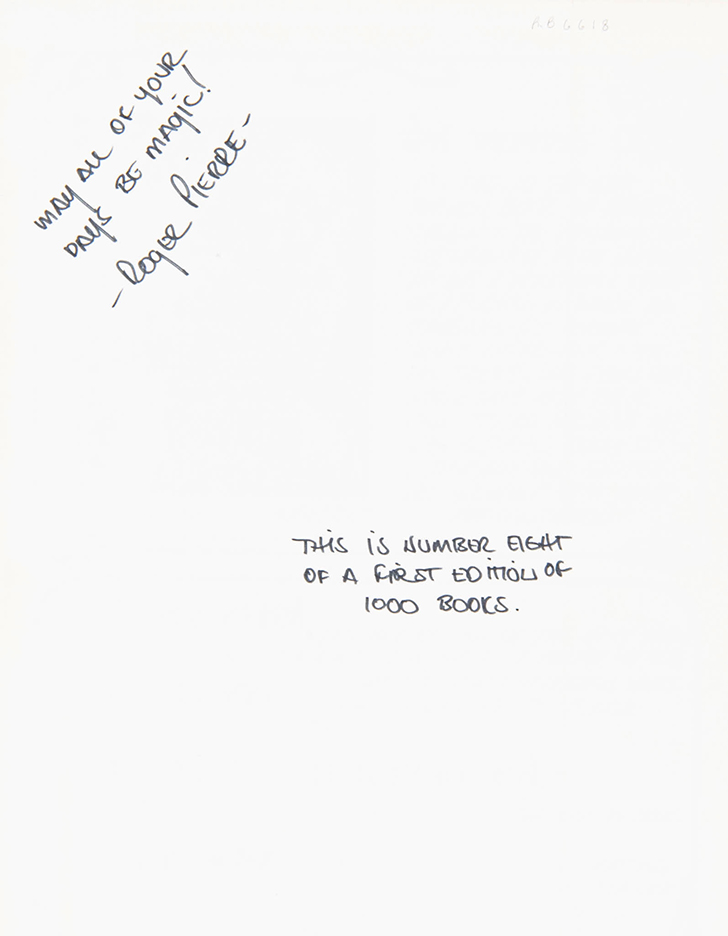 R.B 6618
MAY ALL OF YOUR
DAYS BE MAGIC!
- ROGER PIERRE -
THIS IS NUMBER EIGHT
OF A FIRST EDITION OF
1000 BOOKS.